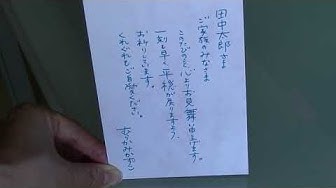 田中太郎さま
ご家族のみなさま
このたびのこと、心よりお見舞い申し上げます。
一刻も早く平穏が戻りますよう、
お祈りしています。
くれぐれもご自愛ください。
むらかみかずこ